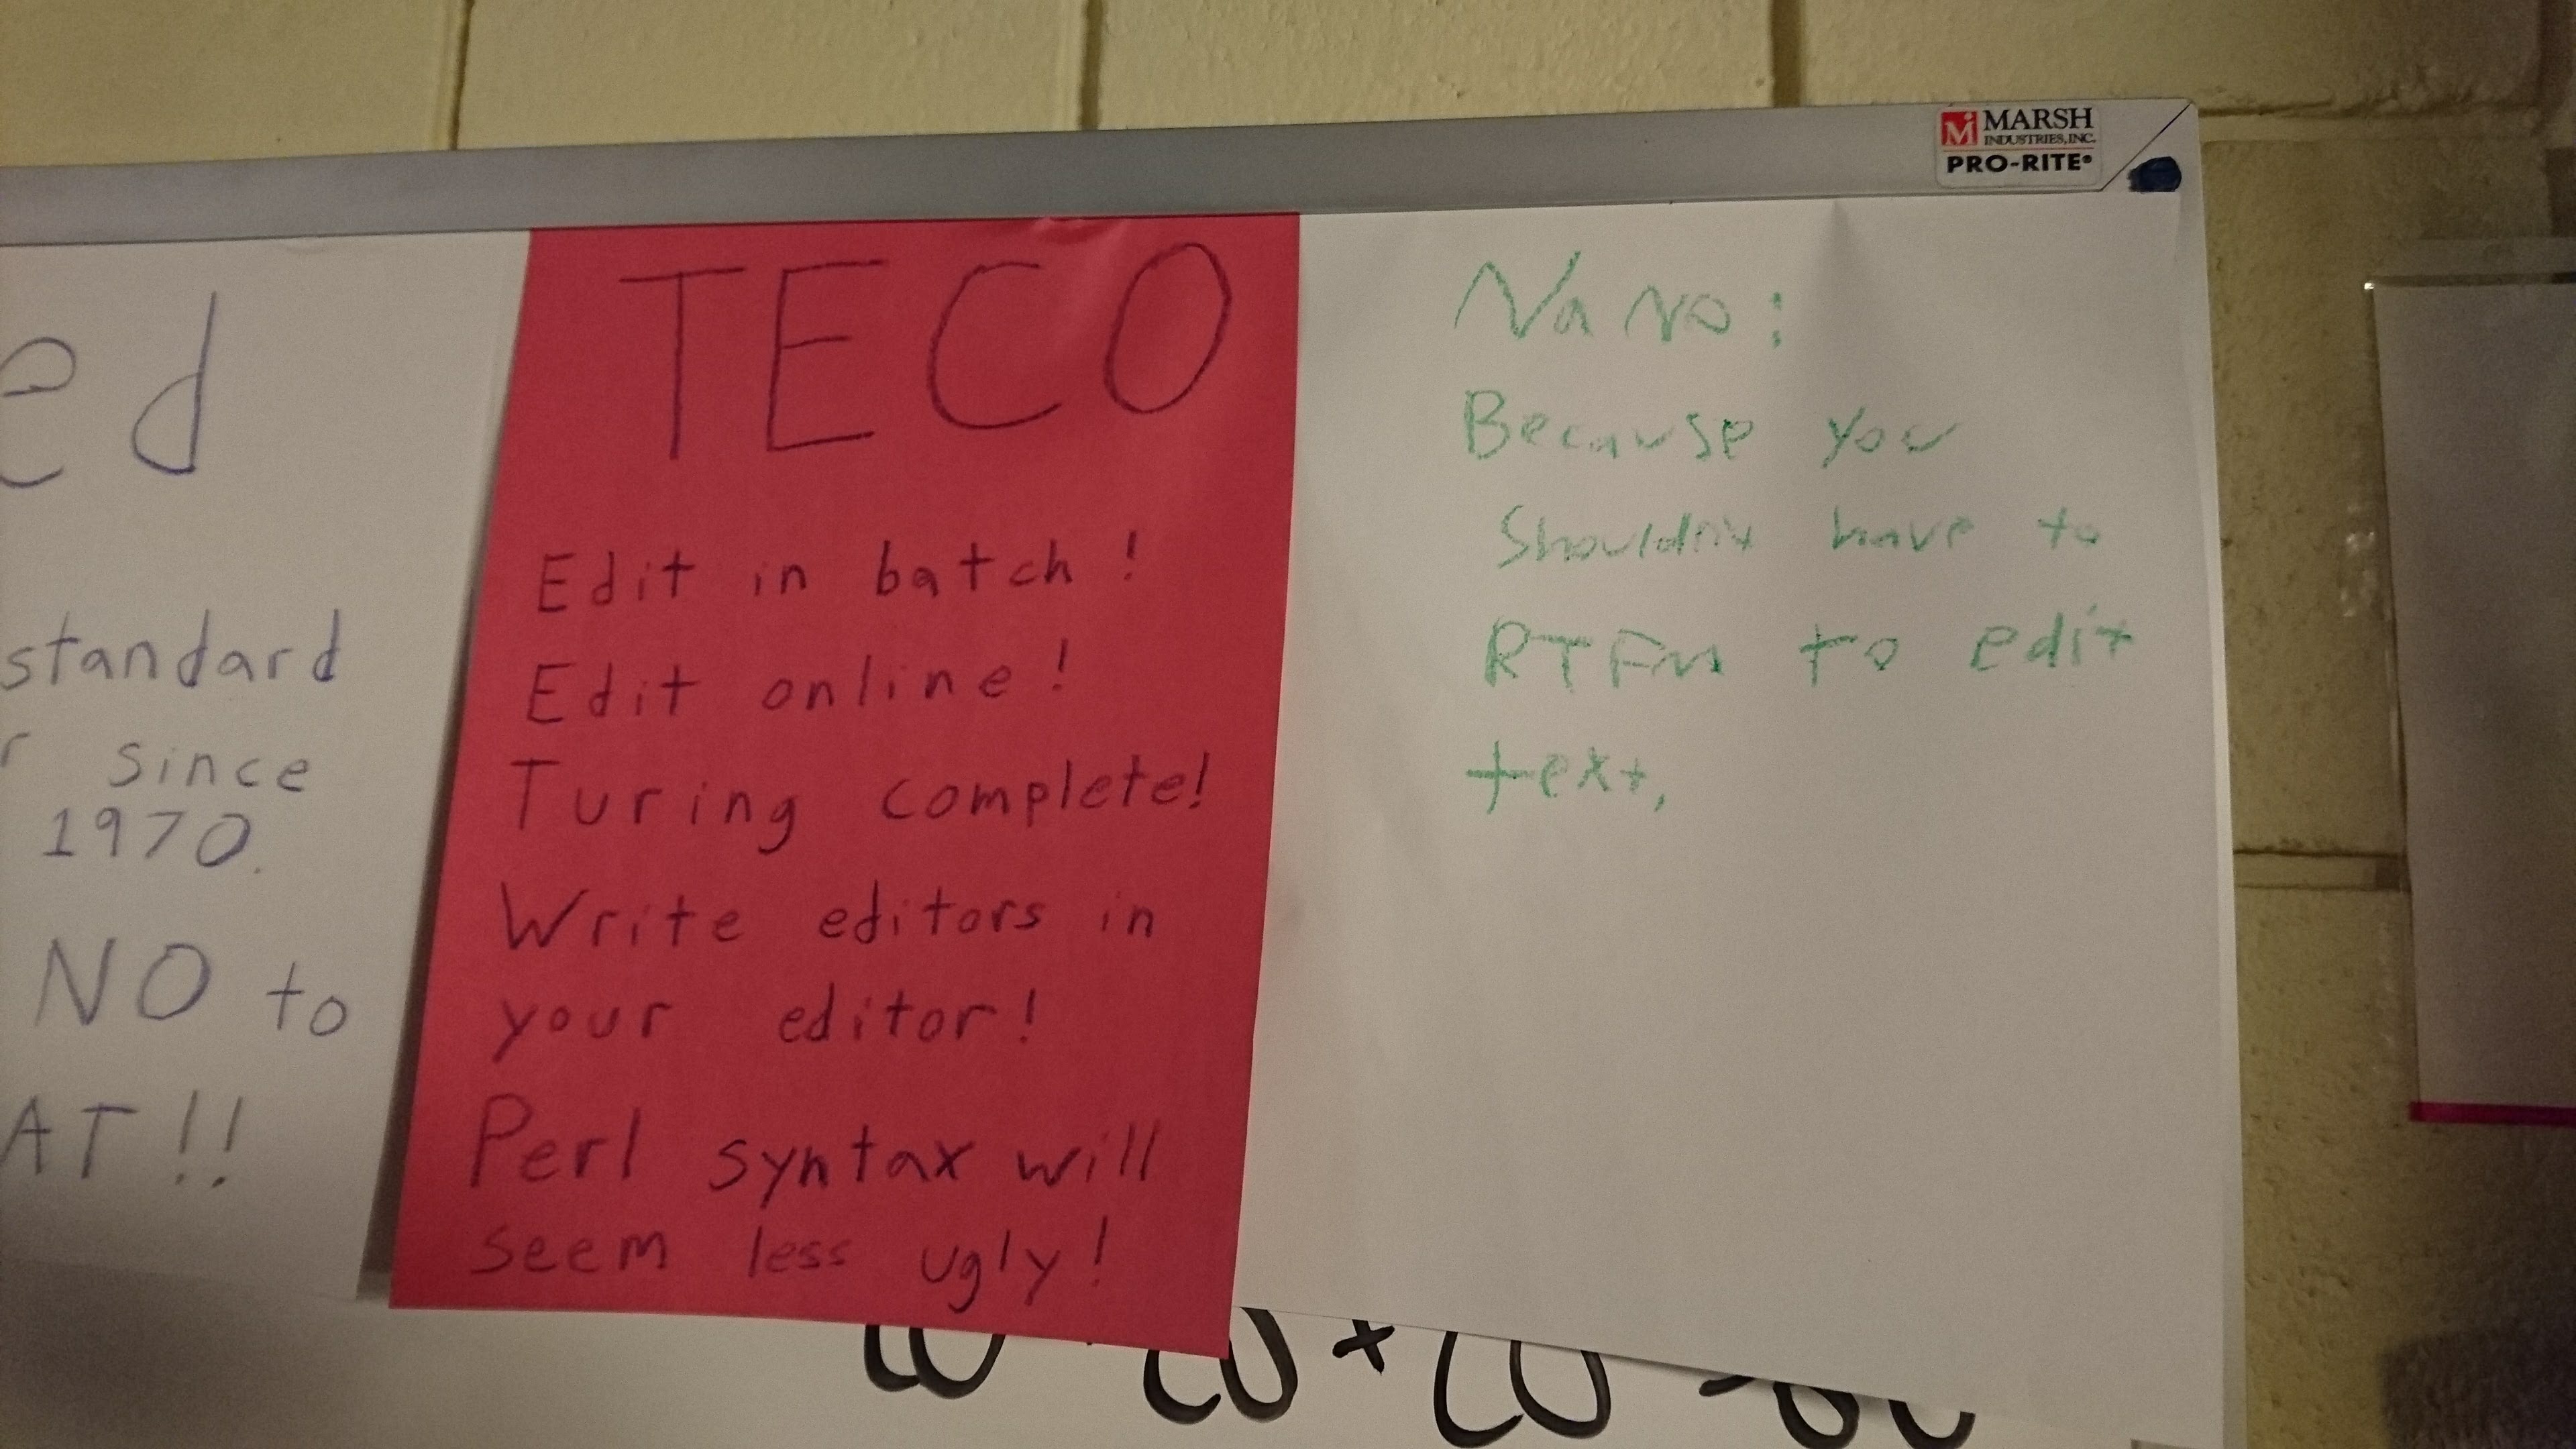 MARSH
INDUSTRIES, INC.
PRO-RITE®
ed
standard
r since
1970.
NO to
AT!!
TECO
Edit in batch!
Edit online!
Turing complete!
Write editors in
your editor!
Perl syntax will
seem less ugly!
NaNo:
Because you
Shouldn't have to
RTFM to edit
text,